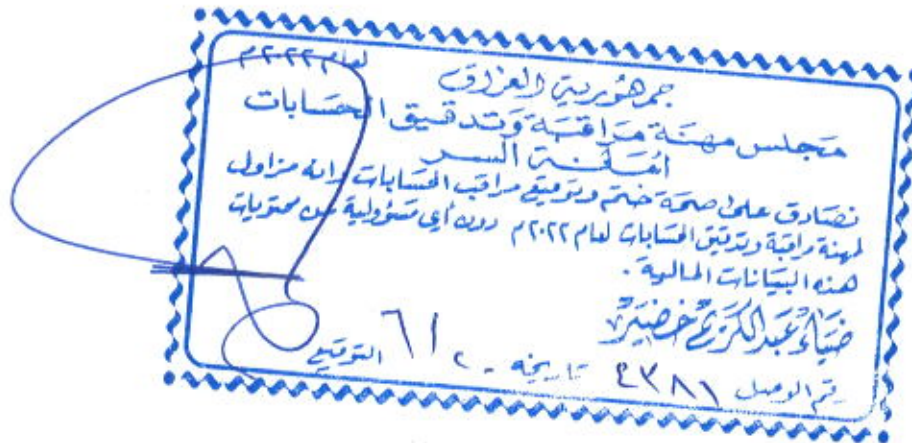 لعام ٢٠٢٢م
جمهورية العراق
مجلس مهنة مراقبة وتدقيق الحسابات
أمانة السر
نصادق على صحة ختم وتوقيع مراقب الحسابات وانه مزاول
لمهنة مراقبة وتدقيق الحسابات لعام ٢٠٢٢م دون أي مسؤولية عن محتويات
هذه البيانات المالية .
ضياء عبد الكريم خضير
رقم الوصل تاريخه التوقيع